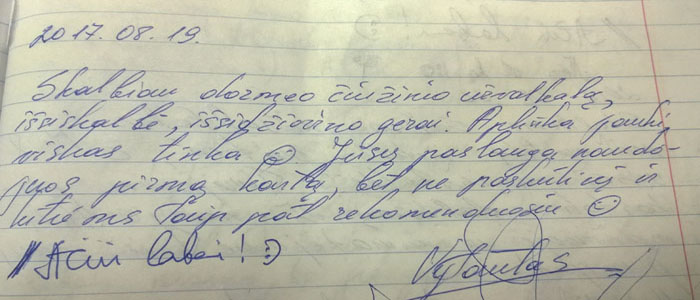 2017.08.19.
Skalbiau dormeo čiužinio užvalkalą,
išsiskalbė, išsidžiovino gerai. Aplinka jauki
viskas tinka ☺. Jūsų paslauga naudo-
juos pirmą kartą, bet ne paskutinį ir
kitiems taip pat rekomenduosiu ☺
Ačiū labai! :)
Vytautas